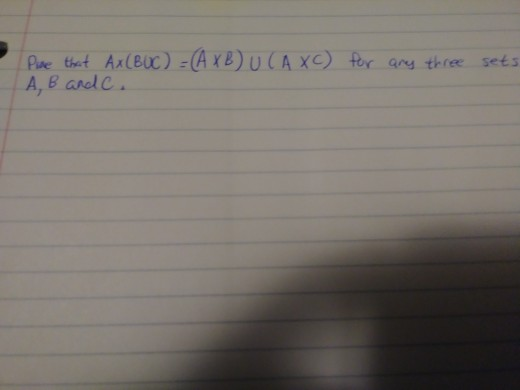 Prove that Ax(BUC) = (AXB) U (A XC) for any three sets
A, B and C.